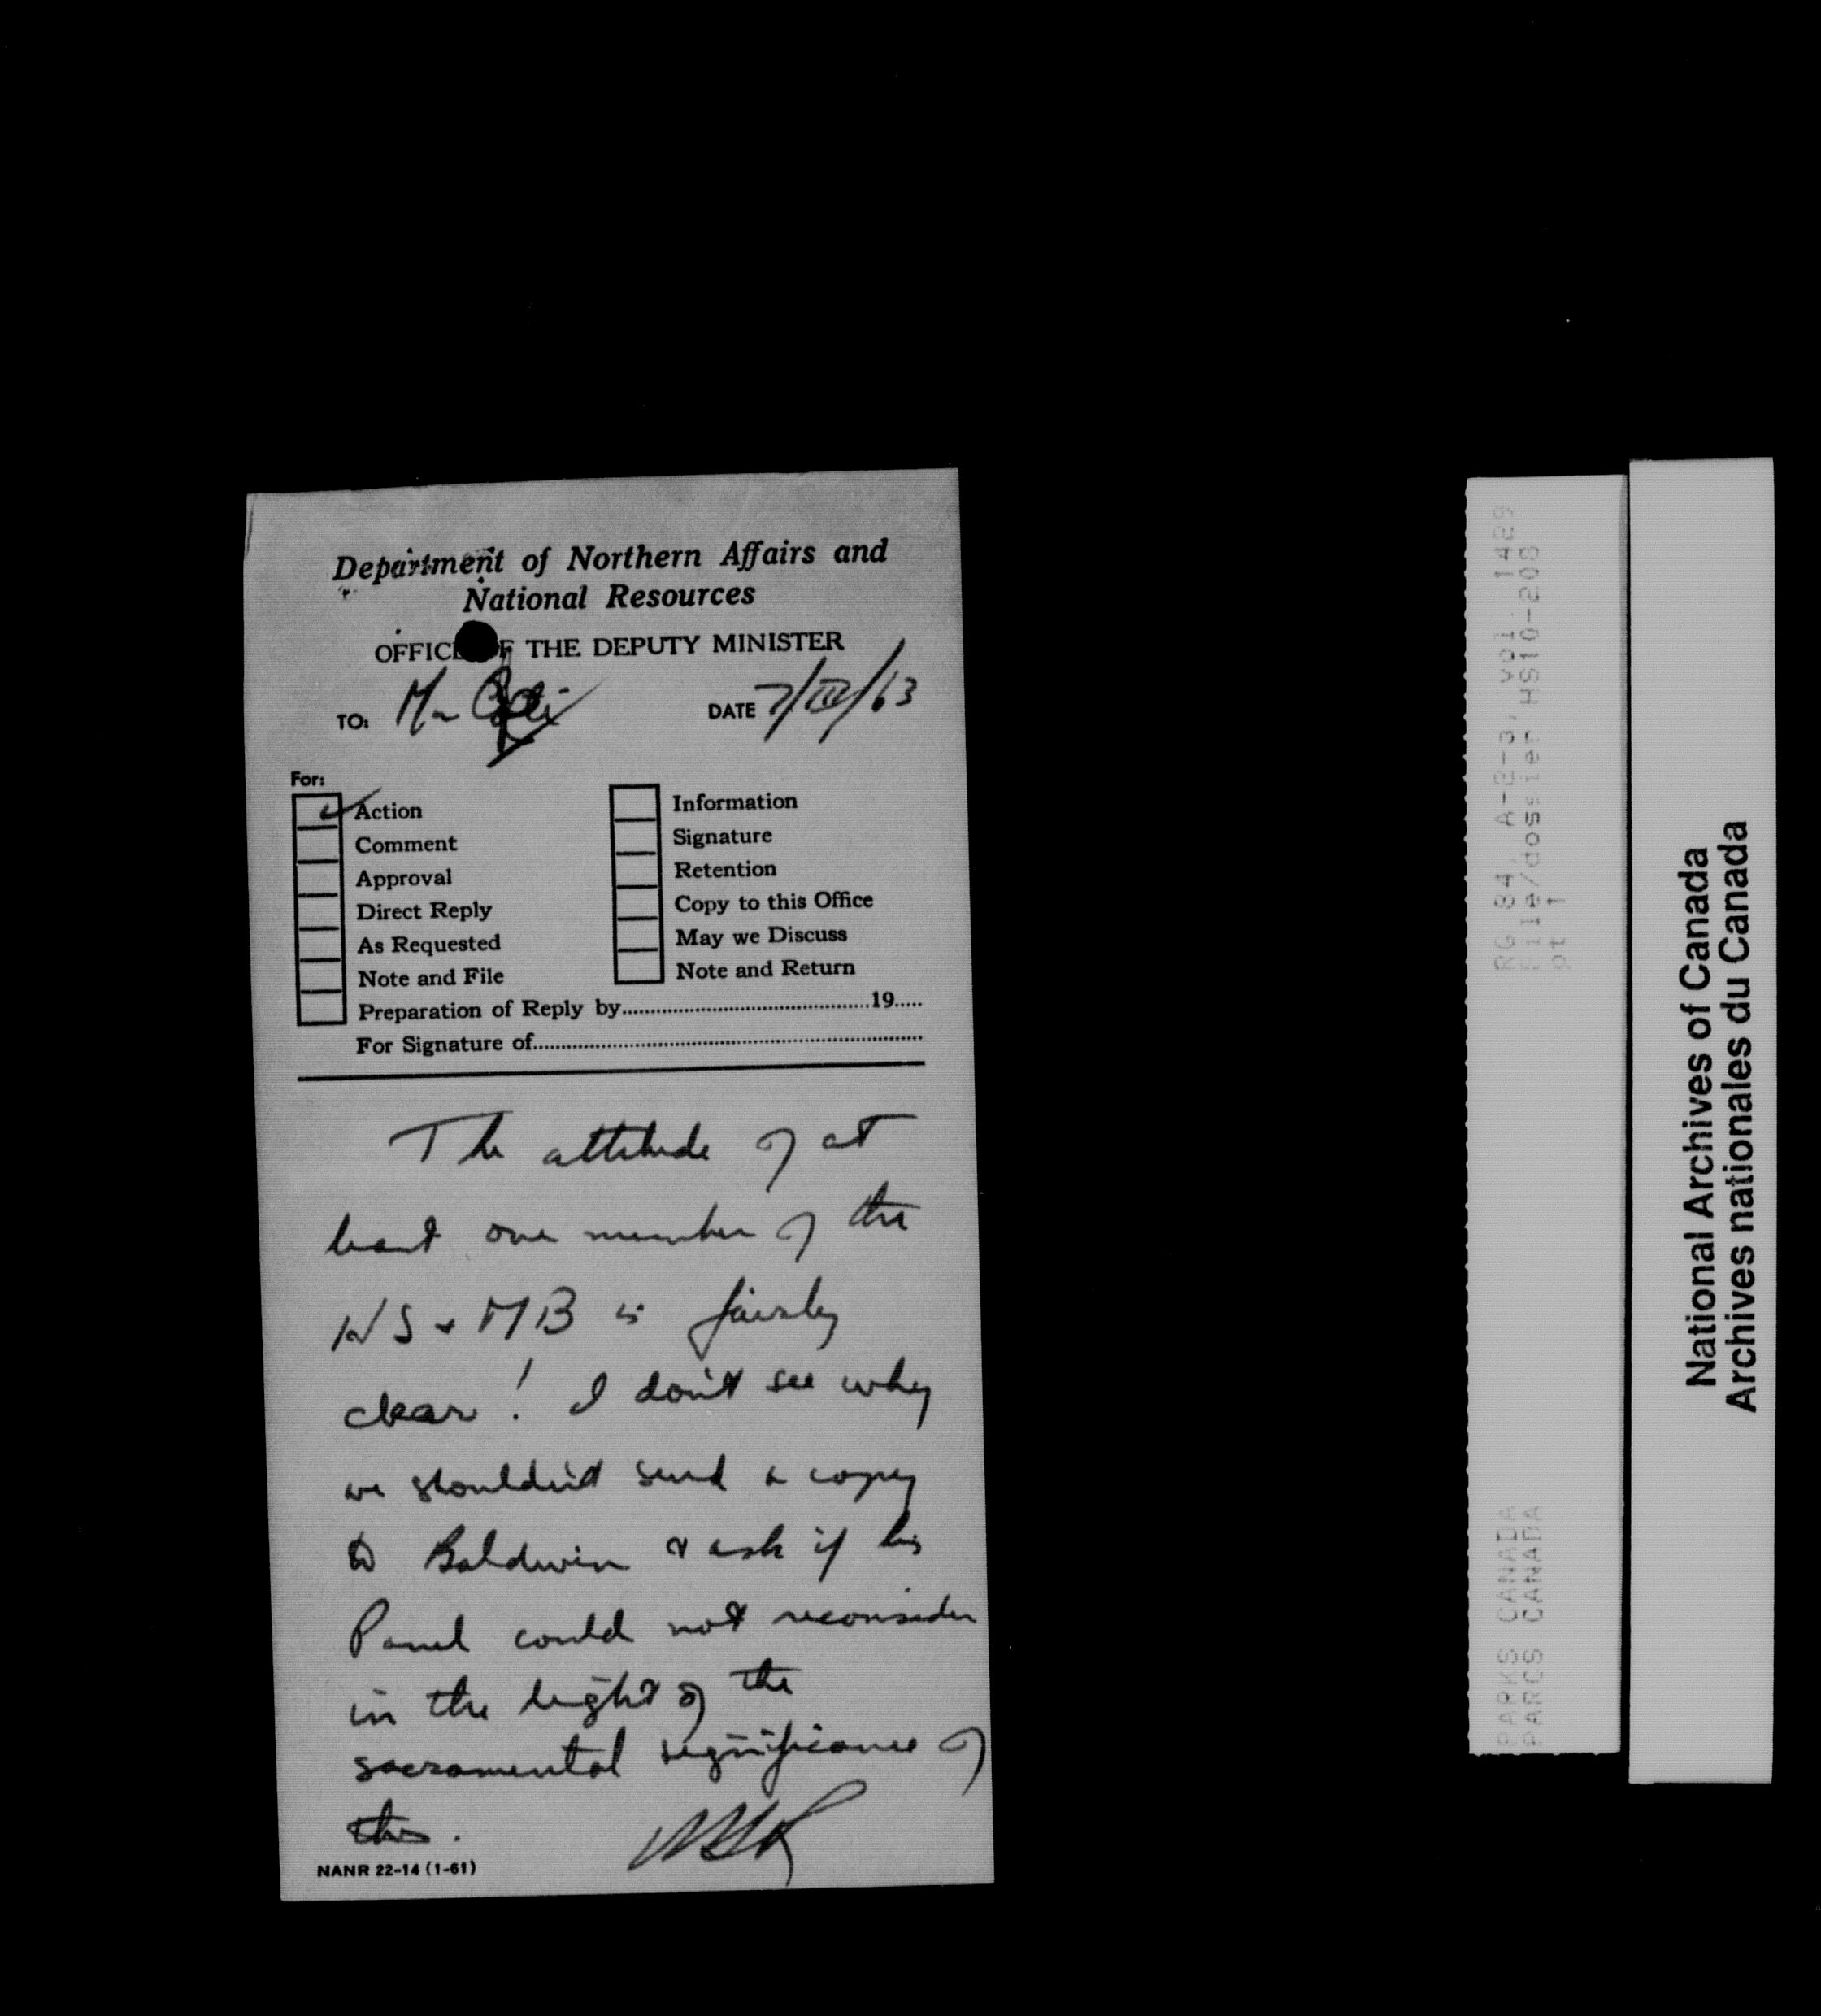 Department of Northern Affairs and
National Resources
OFFICE OF THE DEPUTY MINISTER
TO: Mr
DATE 7/III/63
For:
Action
Comment
Approval
Direct Reply
As Requested
Note and File
Preparation of Reply by 19
For Signature of
Information
Signature
Retention
Copy to this Office
May we Discuss
Note and Return
The attitude of at
least one member of the
HS & MB is fairly
clear! I don't see why
we shouldn't send a copy
to Baldwin & ask if his
Panel could not reconsider
in the light of the
sacramental significance of
this.
NANR 22-14 (1-61)
RG 84, A-2-a, vol. 1429
File/dossier HS10-208
pt 1
PARKS CANADA
PARCS CANADA
National Archives of Canada
Archives nationales du Canada